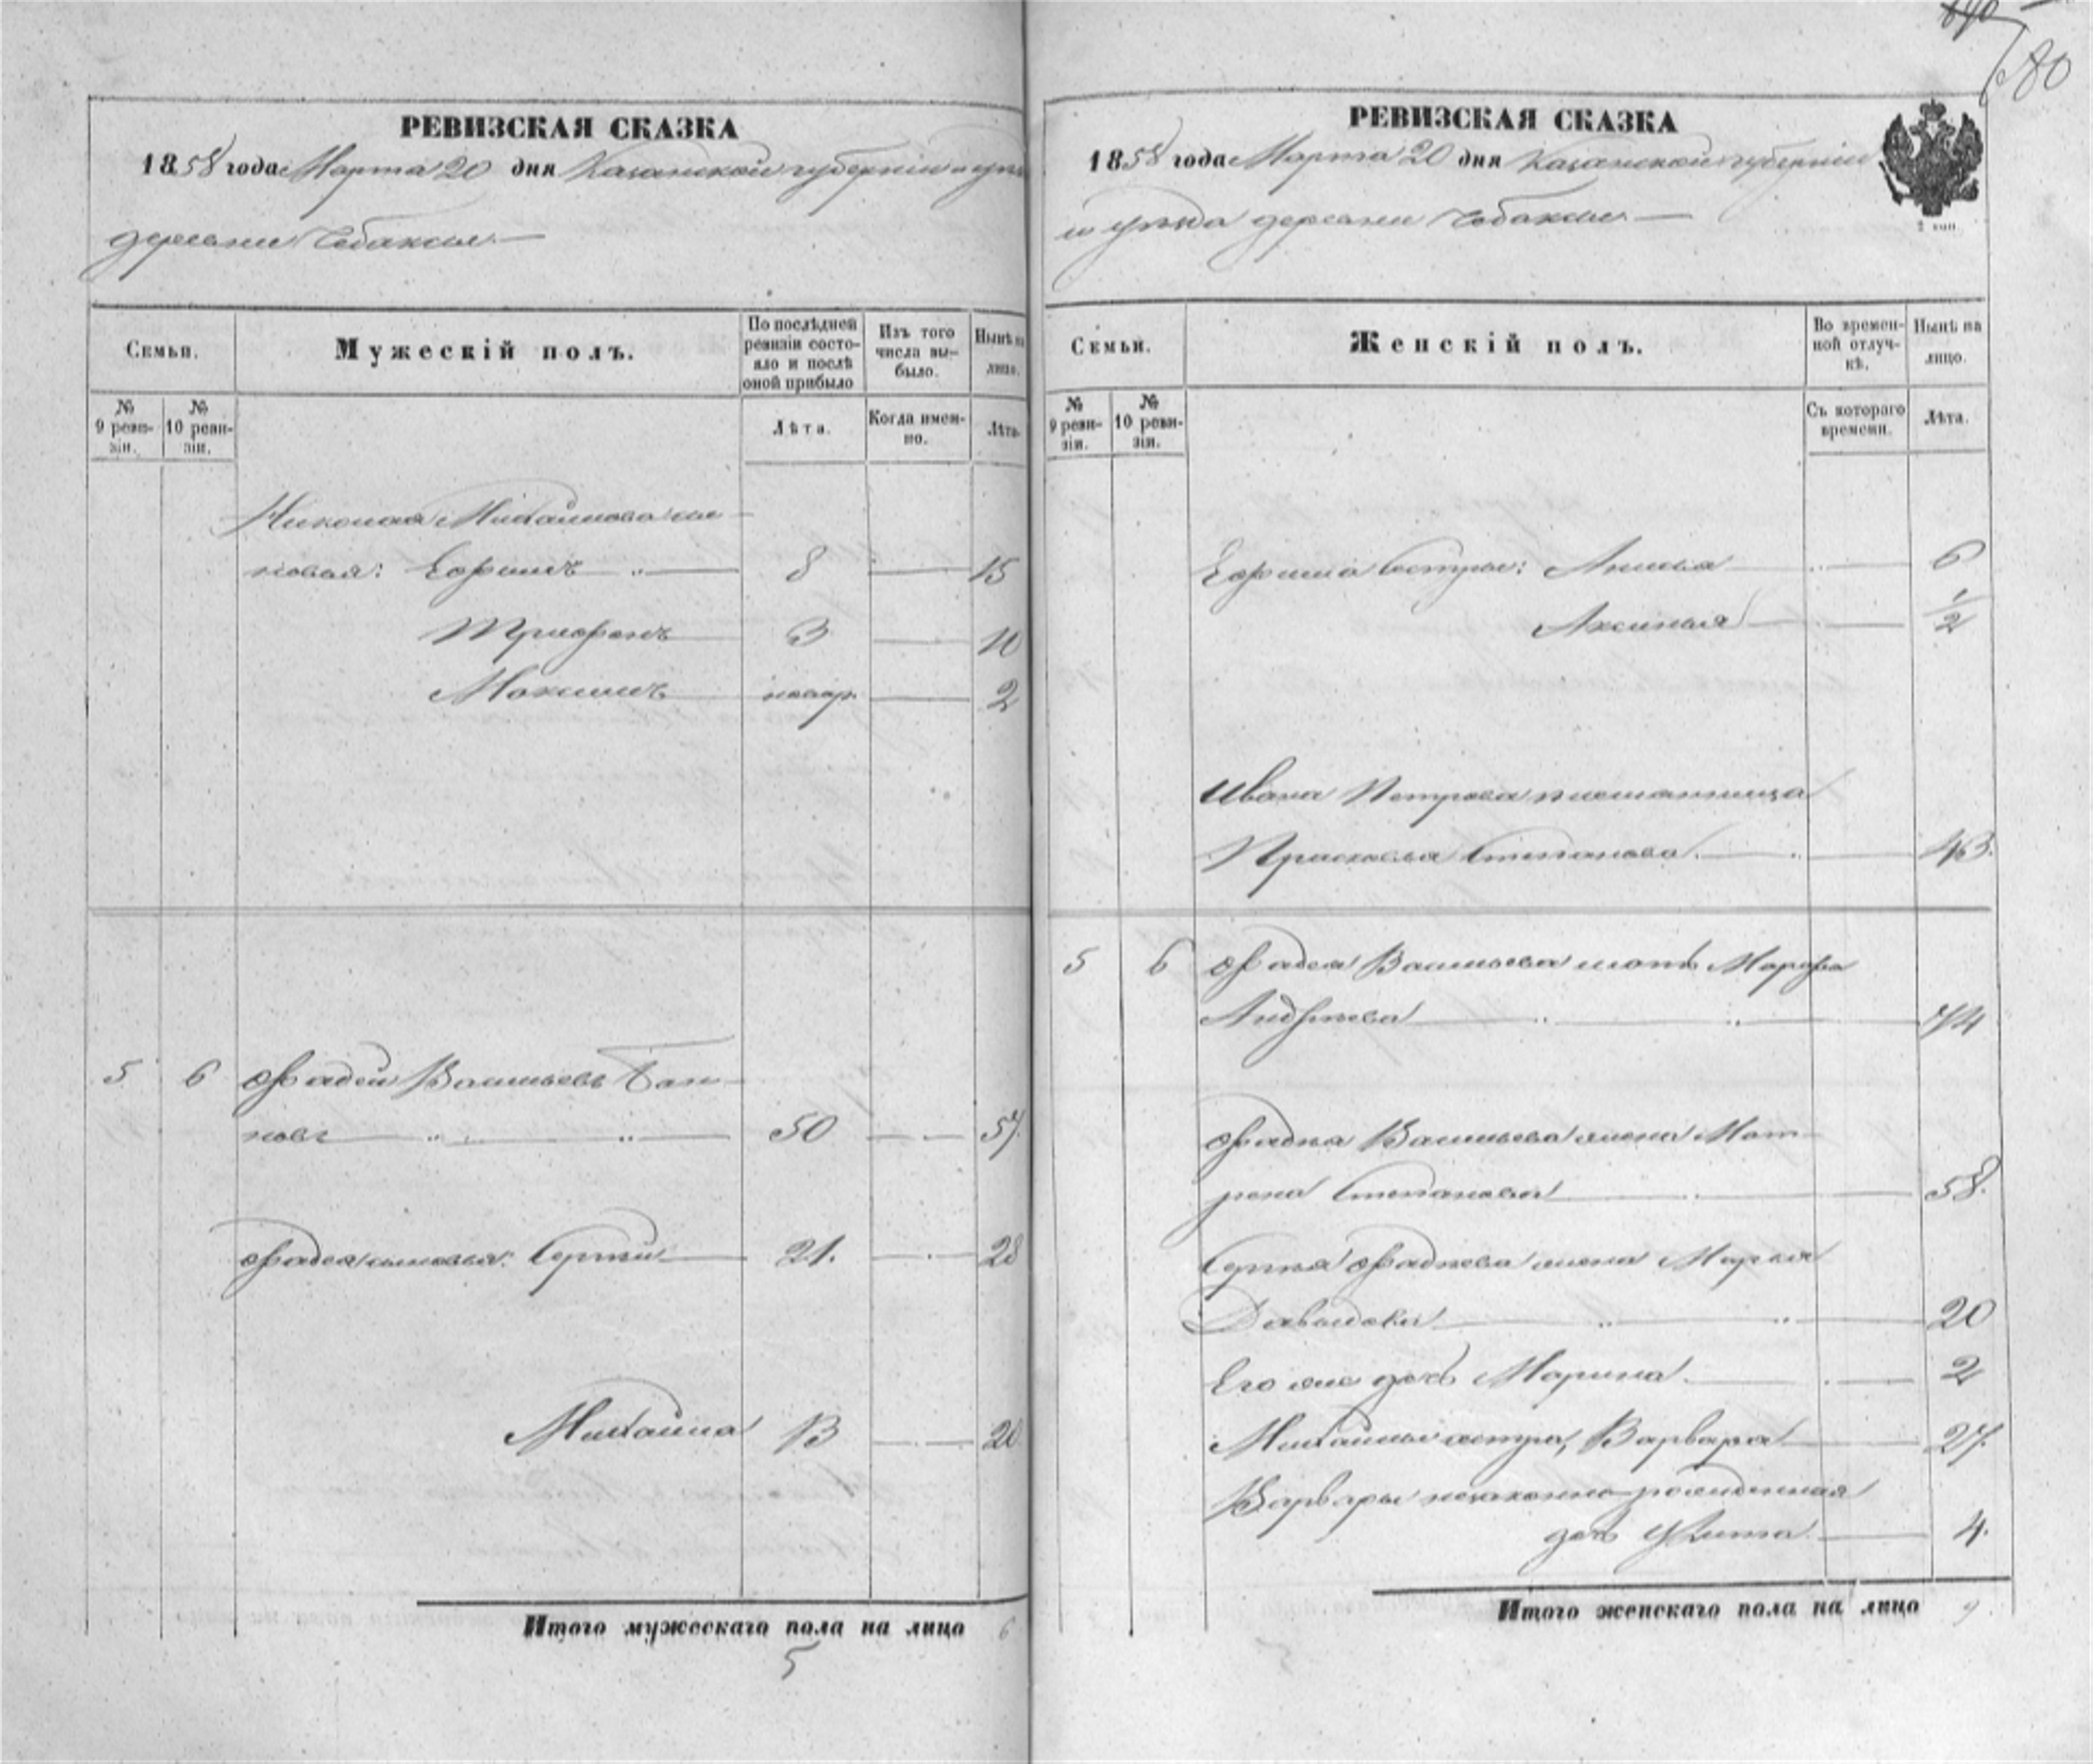 РЕВИЗСКАЯ СКАЗКА
1858 года Марта 20 дня Казанской губернiи и уѣз
деревни Чебаксы.—
Семьи.
Мужескiй полъ.
По послѣдней ревизiи состояло и послѣ оной прибыло
Изъ того числа выбыло.
Нынѣ на лицо.
№ 9 ревизiи.
№ 10 ревизiи.
Лѣта.
Когда именно.
Лѣта.
Николая Михайлова сы-
новья: Ефимъ 8 15
Трифонъ 3 10
Максимъ новор. 2
5 6 Фадей Васильевъ Бан-
новъ 50 57.
Фадея сыновья: Сергѣй 21. 28
Михайла 13 20
Итого мужескаго пола на лицо 6
5
80
РЕВИЗСКАЯ СКАЗКА
1858 года Марта 20 дня Казанской губернiи
и уѣзда деревни Чебаксы.—
2 коп.
Семьи.
Женскiй полъ.
Во временной отлучкѣ.
Нынѣ на лицо.
№ 9 ревизiи.
№ 10 ревизiи.
Съ котораго времени.
Лѣта.
Ефима сестры: Анисья 6
Аксинья 1/2
Ивана Петрова племянница
Прасковья Степанова. 43.
5 6 Фадея Васильева мать Марфа
Андрѣева 74
Фадѣя Васильева жена Мат-
рена Степанова 58.
Сергѣя Фадѣева жена Марья
Давыдова 20
Его же дочь Марина. 2
Михайлы сестра, Варвара 27.
Варвары незаконно-рожденная
дочь Улита 4.
Итого женскаго пола на лицо 9